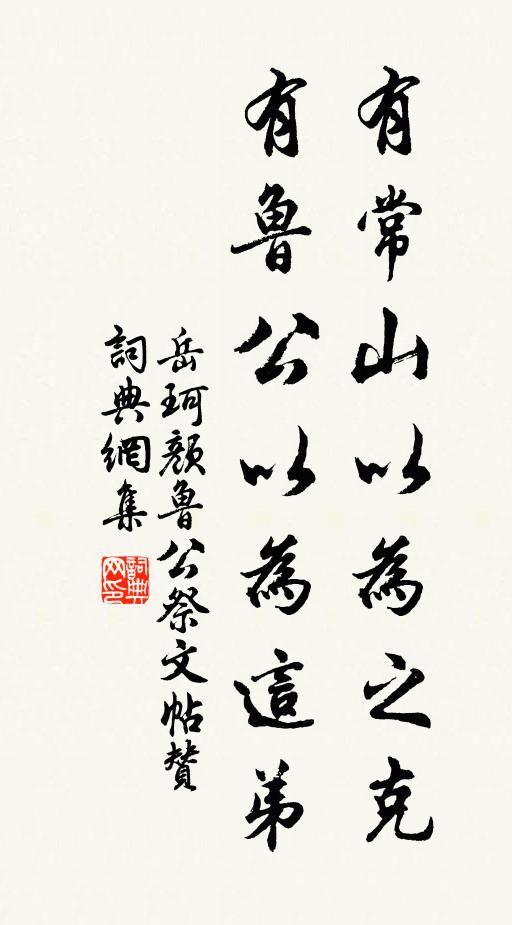 有常山以為之克
有魯公以為這弟
岳珂顏魯公祭文帖贊
詞典網集
詞典网印